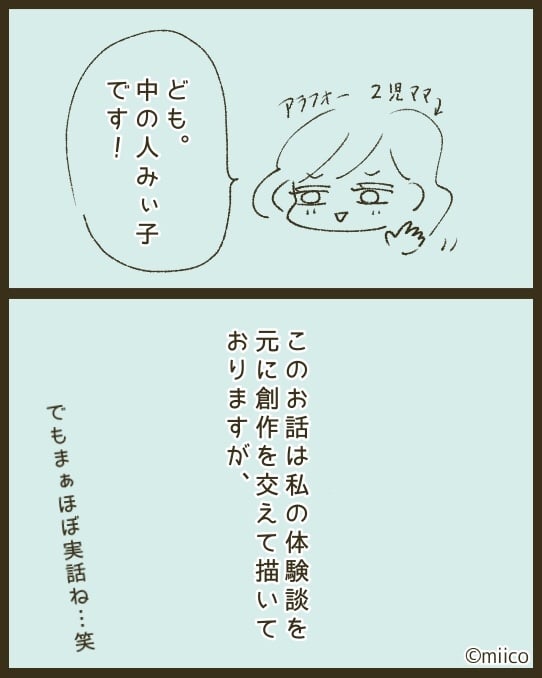 アラフォー 2児ママ
ども。
中の人みぃ子
です!
このお話は私の体験談を
元に創作を交えて描いて
おりますが、
でもまぁほぼ実話ね…笑
©miico